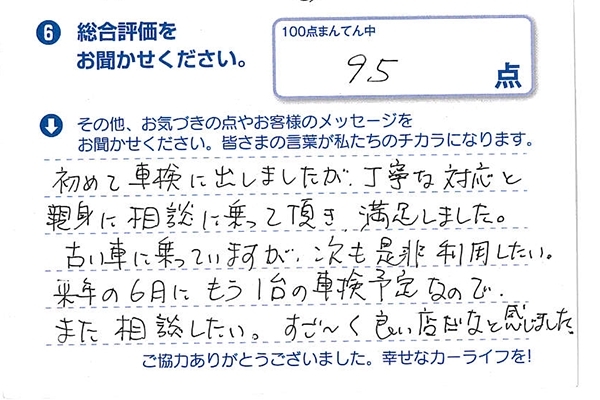 6 総合評価を
お聞かせください。
100点まんてん中
95 点
その他、お気づきの点やお客様のメッセージを
お聞かせください。皆さまの言葉が私たちのチカラになります。
初めて車検に出しましたが、丁寧な対応と
親身に相談に乗って頂き、満足しました。
古い車に乗っていますが、次も是非利用したい。
来年の6月にもう1台の車検予定なので、
また相談したい。すご〜く良い店だなと感じました。
ご協力ありがとうございました。幸せなカーライフを!